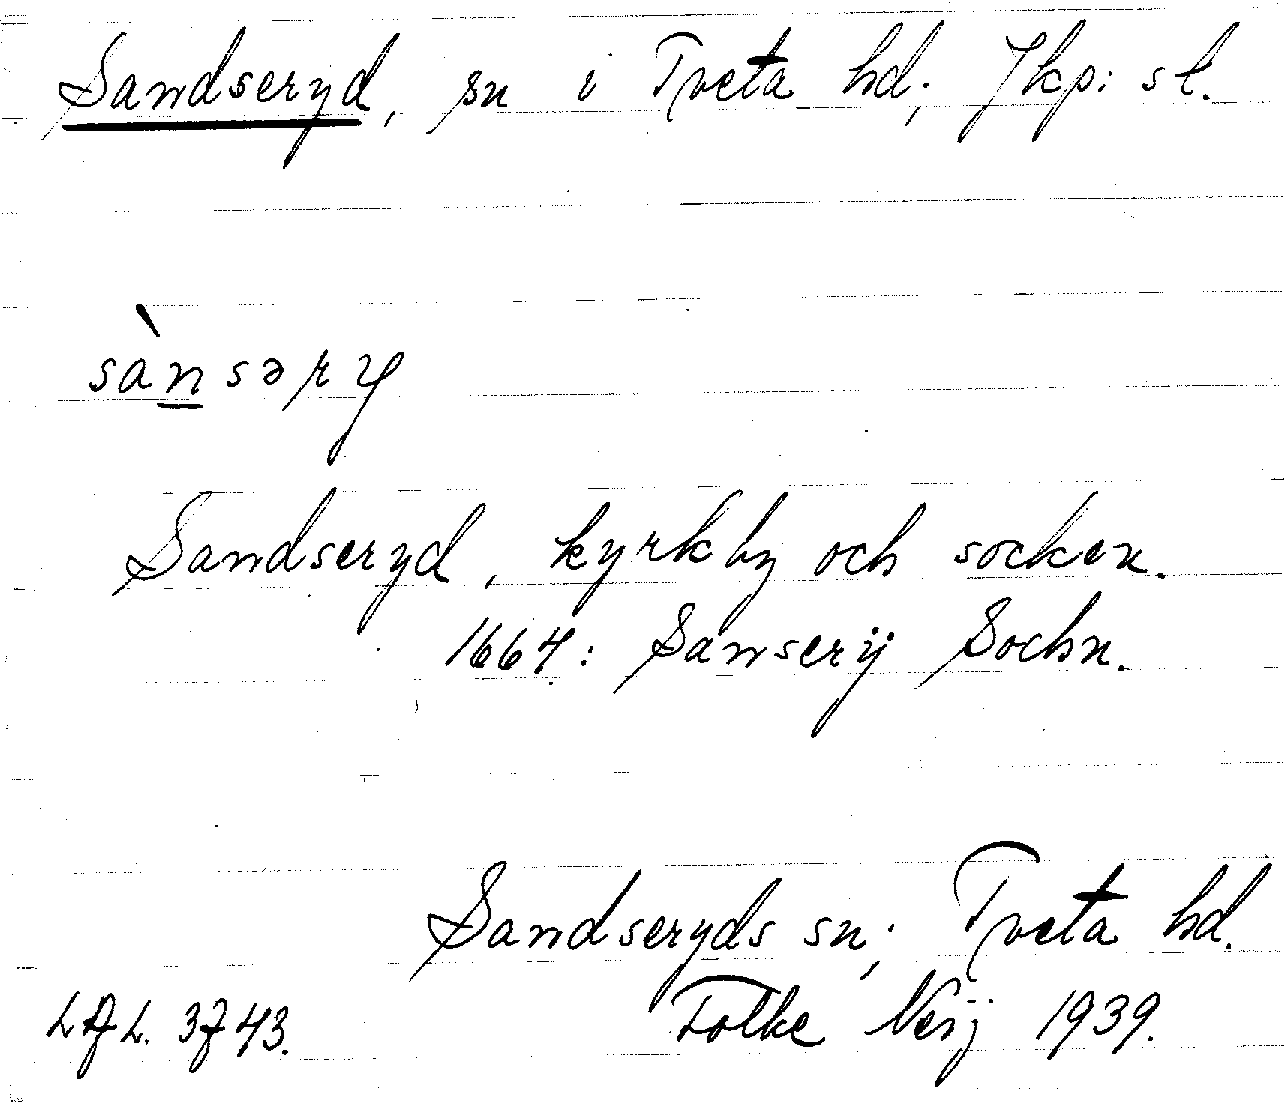 Sandseryd, sn i Tveta hd; Jkp: sl.
sànsəry
Sandseryd, kyrkby och socken.
1664: Sanserÿ Sochn.
Sandseryds sn; Tveta hd.
Folke Neij 1939.